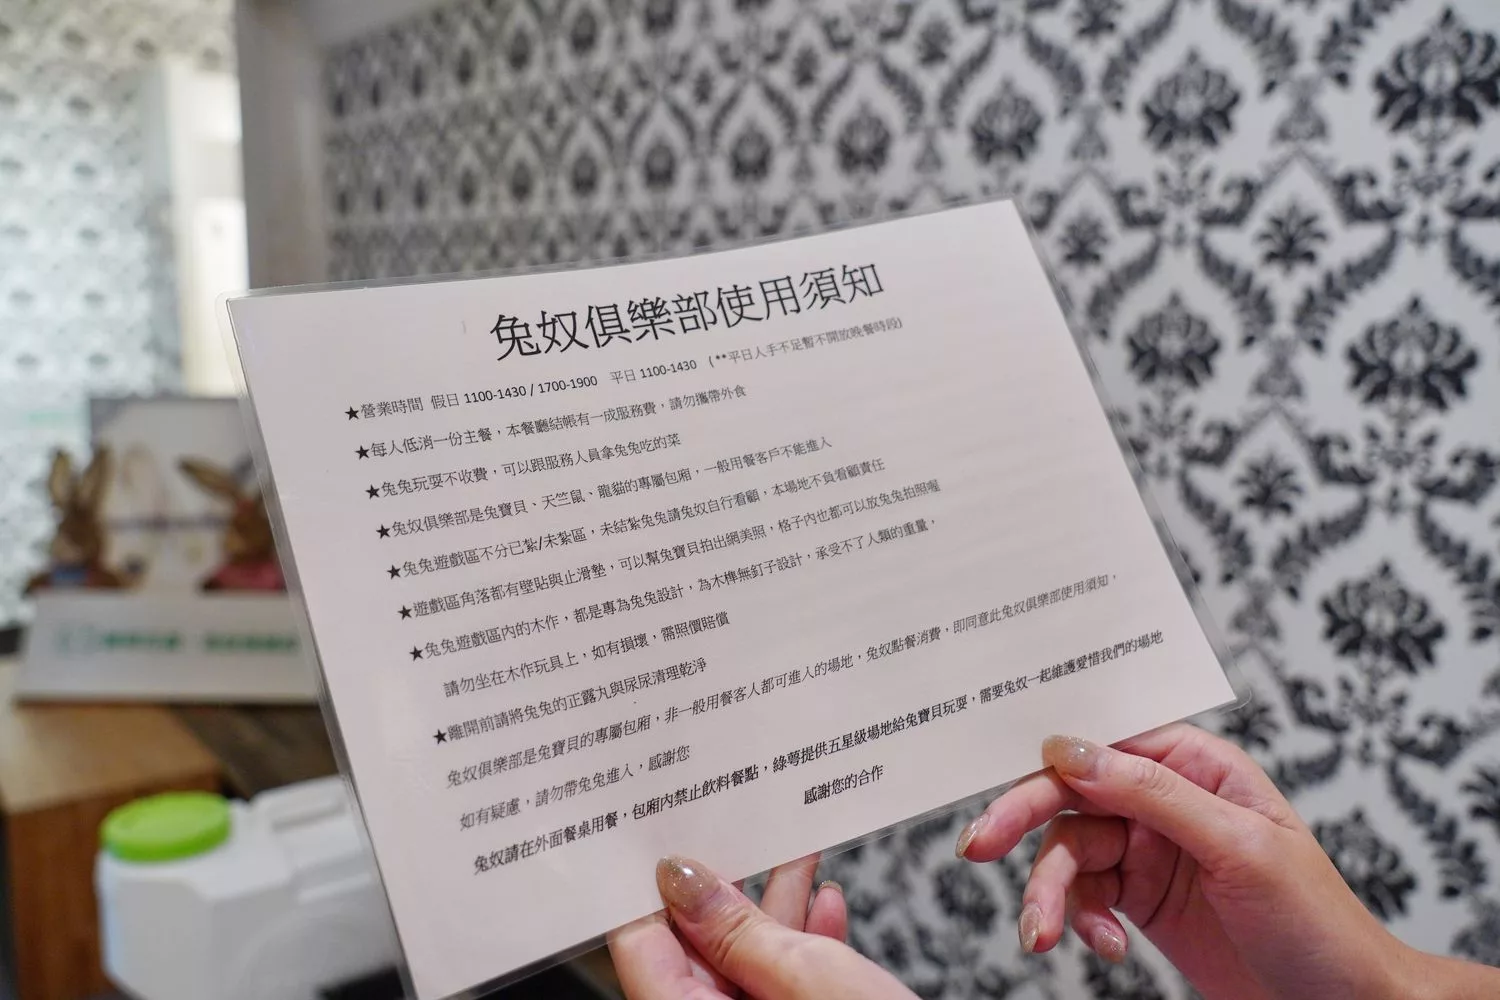 兔奴俱樂部使用須知
★營業時間 假日 1100-1430 / 1700-1900 平日 1100-1430 (**平日人手不足暫不開放晚餐時段)
★每人低消一份主餐，本餐廳結帳有一成服務費，請勿攜帶外食
★兔兔玩耍不收費，可以跟服務人員拿兔兔吃的菜
★兔奴俱樂部是兔寶貝、天竺鼠、龍貓的專屬包廂，一般用餐客戶不能進入
★兔兔遊戲區不分已紮/未紮區，未結紮兔兔請兔奴自行看顧，本場地不負看顧責任
★遊戲區角落都有壁貼與止滑墊，可以幫兔寶貝拍出網美照，格子內也都可以放兔兔拍照喔
★兔兔遊戲區內的木作，都是專為兔兔設計，為木榫無釘子設計，承受不了人類的重量，
請勿坐在木作玩具上，如有損壞，需照價賠償
★離開前請將兔兔的正露丸與尿尿清理乾淨
兔奴俱樂部是兔寶貝的專屬包廂，非一般用餐客人都可進入的場地，兔奴點餐消費，即同意此兔奴俱樂部使用須知，
如有疑慮，請勿帶兔兔進入，感謝您
兔奴請在外面餐桌用餐，包廂內禁止飲料餐點，綠萼提供五星級場地給兔寶貝玩耍，需要兔奴一起維護愛惜我們的場地
感謝您的合作